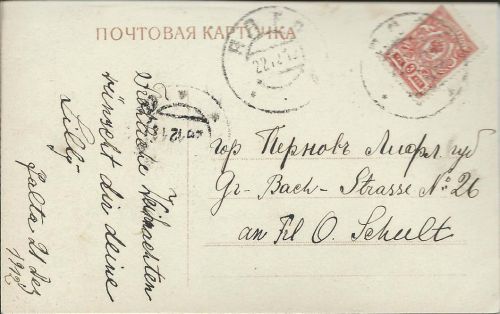 ПОЧТОВАЯ КАРТОЧКА
Fröhliche Weihnachten
wünscht dir deine
Lilly
21 Dez
гор Перновъ Лифл. губ
Gr-Bach-Strasse No 26
an Frl O. Schult